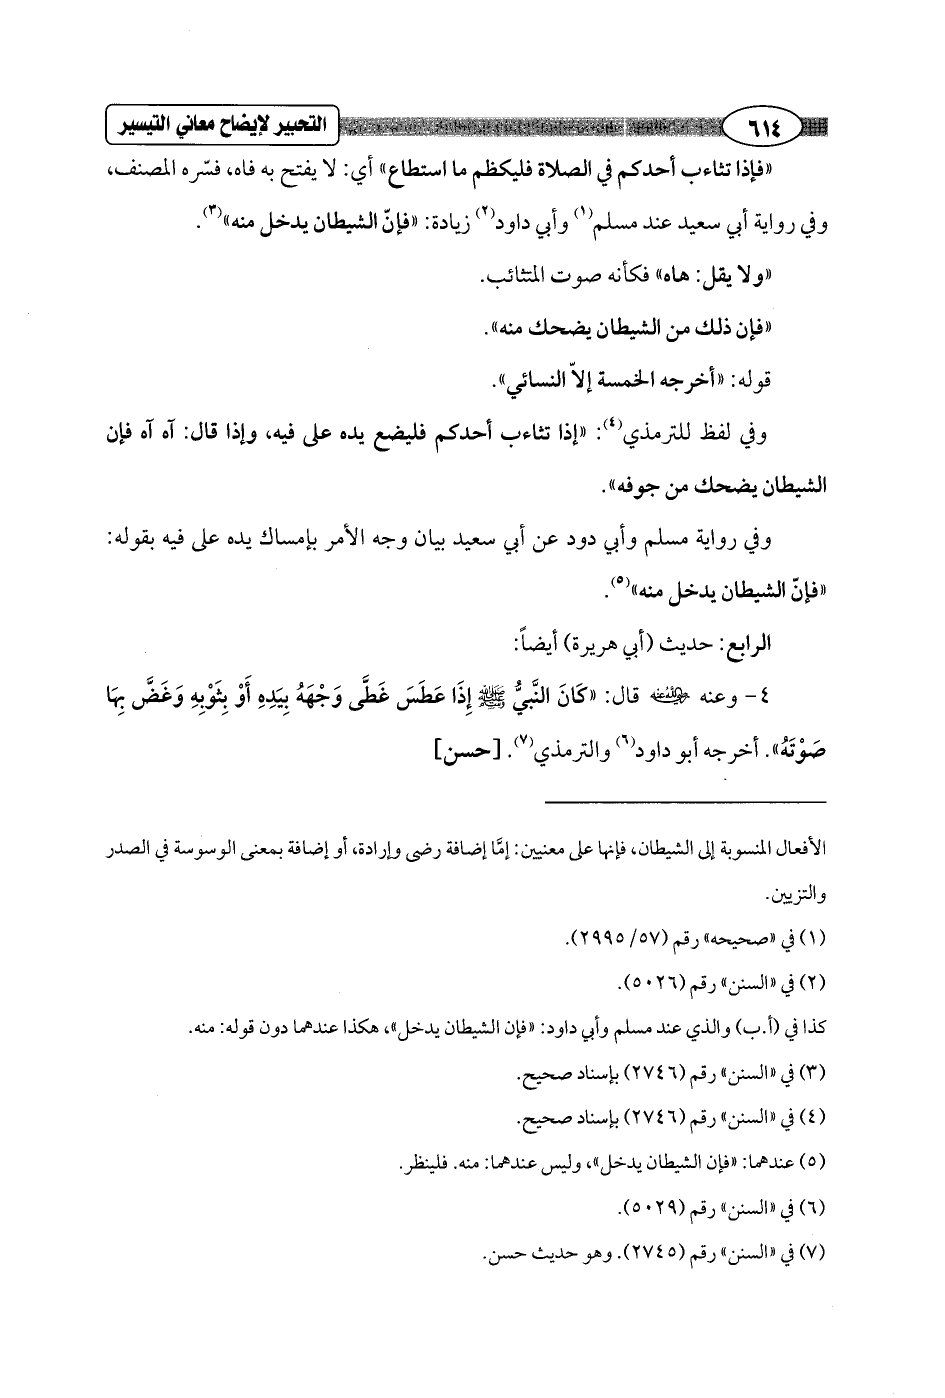 ٦١٤ التحبير لإيضاح معاني التيسير
«فإذا تثاءب أحدكم في الصلاة فليكظم ما استطاع» أي: لا يفتح به فاه، فسّره المصنف،
وفي رواية أبي سعيد عند مسلم(١) وأبي داود(٢) زيادة: «فإنّ الشيطان يدخل منه»(٣).
«ولا يقل: هاه» فكأنه صوت المتثائب.
«فإن ذلك من الشيطان يضحك منه».
قوله: «أخرجه الخمسة إلاّ النسائي».
وفي لفظ للترمذي(٤): «إذا تثاءب أحدكم فليضع يده على فيه، وإذا قال: آه آه فإن
الشيطان يضحك من جوفه».
وفي رواية مسلم وأبي دود عن أبي سعيد بيان وجه الأمر بإمساك يده على فيه بقوله:
«فإنّ الشيطان يدخل منه»(٥).
الرابع: حديث (أبي هريرة) أيضاً:
٤- وعنه رضي الله عنه قال: «كَانَ النَّبِيُّ ﷺ إِذَا عَطَسَ غَطَّى وَجْهَهُ بِيَدِهِ أَوْ بِثَوْبِهِ وَغَضَّ بِهَا
صَوْتَهُ». أخرجه أبو داود(٦) والترمذي(٧). [حسن]
الأفعال المنسوبة إلى الشيطان، فإنها على معنيين: إمَّا إضافة رضى وإرادة، أو إضافة بمعنى الوسوسة في الصدر
والتزيين.
(١) في «صحيحه» رقم (٥٧/ ٢٩٩٥).
(٢) في «السنن» رقم (٥٠٢٦).
كذا في (أ.ب) والذي عند مسلم وأبي داود: «فإن الشيطان يدخل»، هكذا عندهما دون قوله: منه.
(٣) في «السنن» رقم (٢٧٤٦) بإسناد صحيح.
(٤) في «السنن» رقم (٢٧٤٦) بإسناد صحيح.
(٥) عندهما: «فإن الشيطان يدخل»، وليس عندهما: منه. فلينظر.
(٦) في «السنن» رقم (٥٠٢٩).
(٧) في «السنن» رقم (٢٧٤٥). وهو حديث حسن.